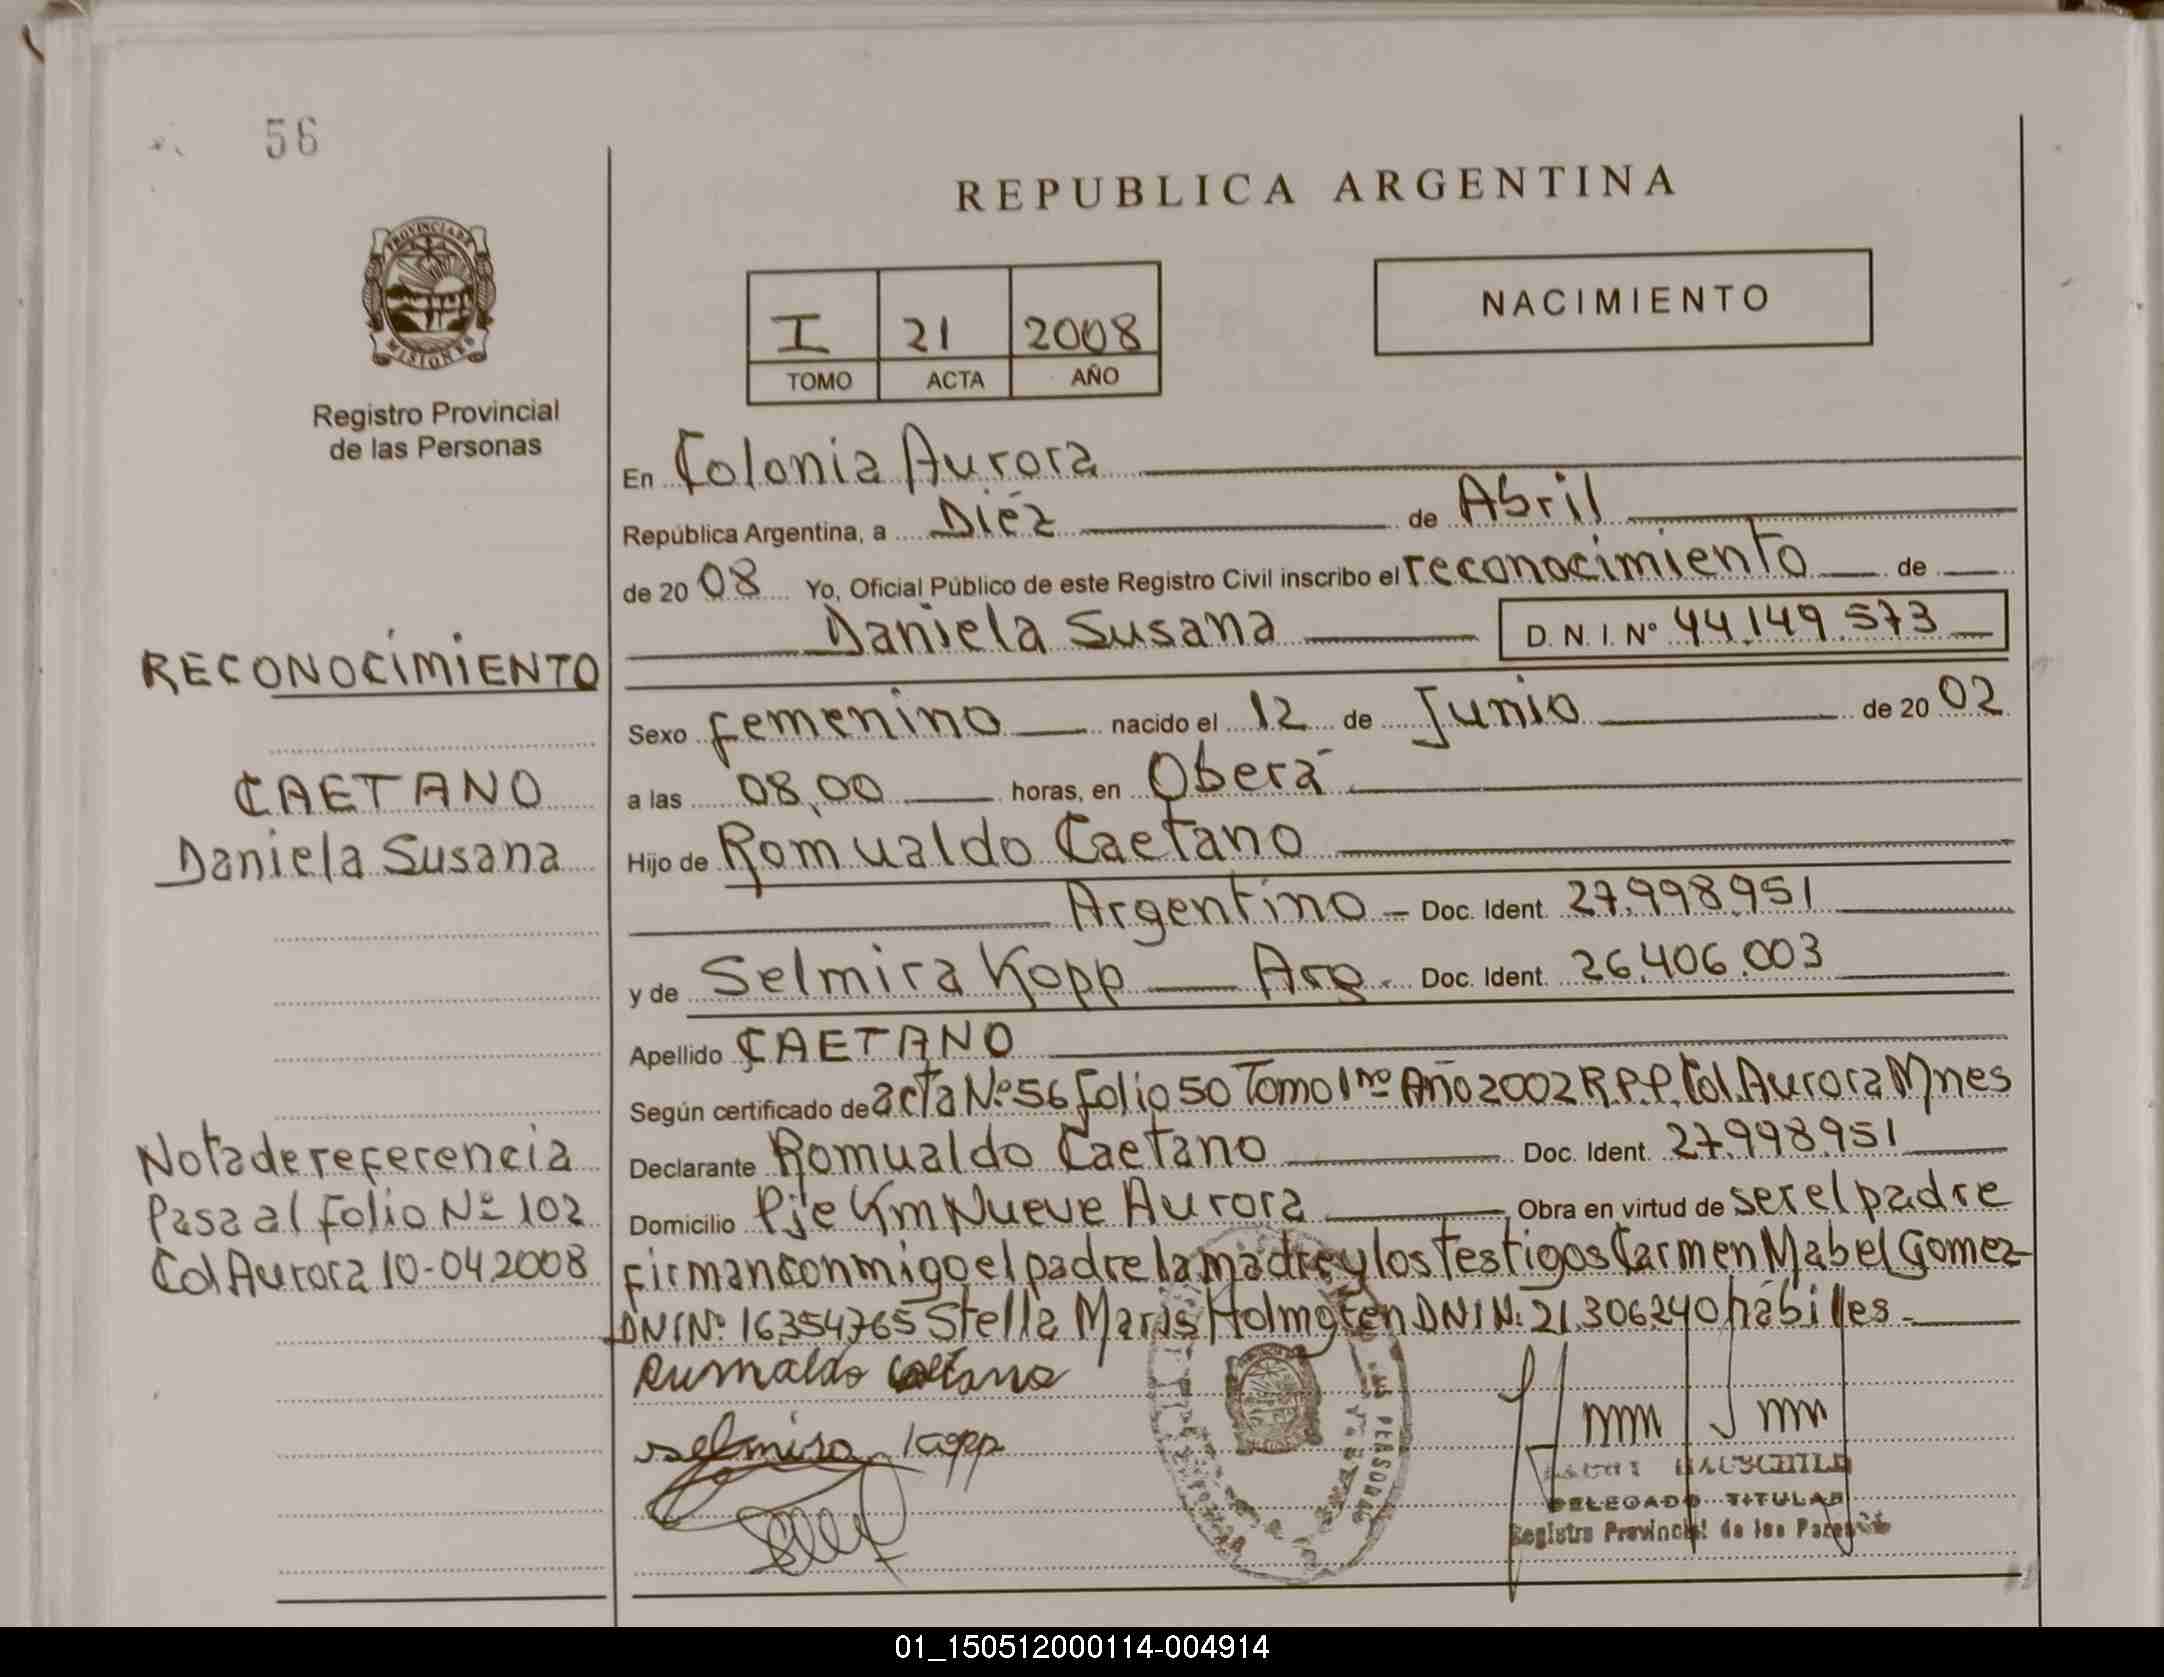 56
REPUBLICA ARGENTINA
PROVINCIA DE
MISIONES
Registro Provincial
de las Personas
I 21 2008
TOMO ACTA AÑO
NACIMIENTO
En Colonia Aurora
República Argentina, a Diéz de Abril
de 20 08 Yo, Oficial Público de este Registro Civil inscribo el reconocimiento de
Daniela Susana D. N. I. Nº 44.149.573
RECONOCIMIENTO
Sexo femenino nacido el 12 de Junio de 20 02
CAETANO
a las 08,00 horas, en Oberá
Daniela Susana
Hijo de Romualdo Caetano
Argentino - Doc. Ident. 27.998.951
y de Selmira Kopp Arg. Doc. Ident. 26.406.003
Apellido CAETANO
Según certificado de acta Nº 56 Folio 50 Tomo 1ro Año 2002 R.P.P. Col. Aurora Mnes
Nota de referencia
Declarante Romualdo Caetano Doc. Ident. 27.998951
Pasa al Folio Nº 102
Domicilio Pje Km Nueve Aurora Obra en virtud de ser el padre
Col Aurora 10-04.2008
Firman conmigo el padre la madre y los Testigos Carmen Mabel Gomez
DNI Nº 16354765 Stella Maris Holmgren DNI N: 21.306240 hábiles.
Rumaldo Caetano
Selmira Kopp
DELEGADO TITULAR
Registro Provincial de las Personas
01_150512000114-004914